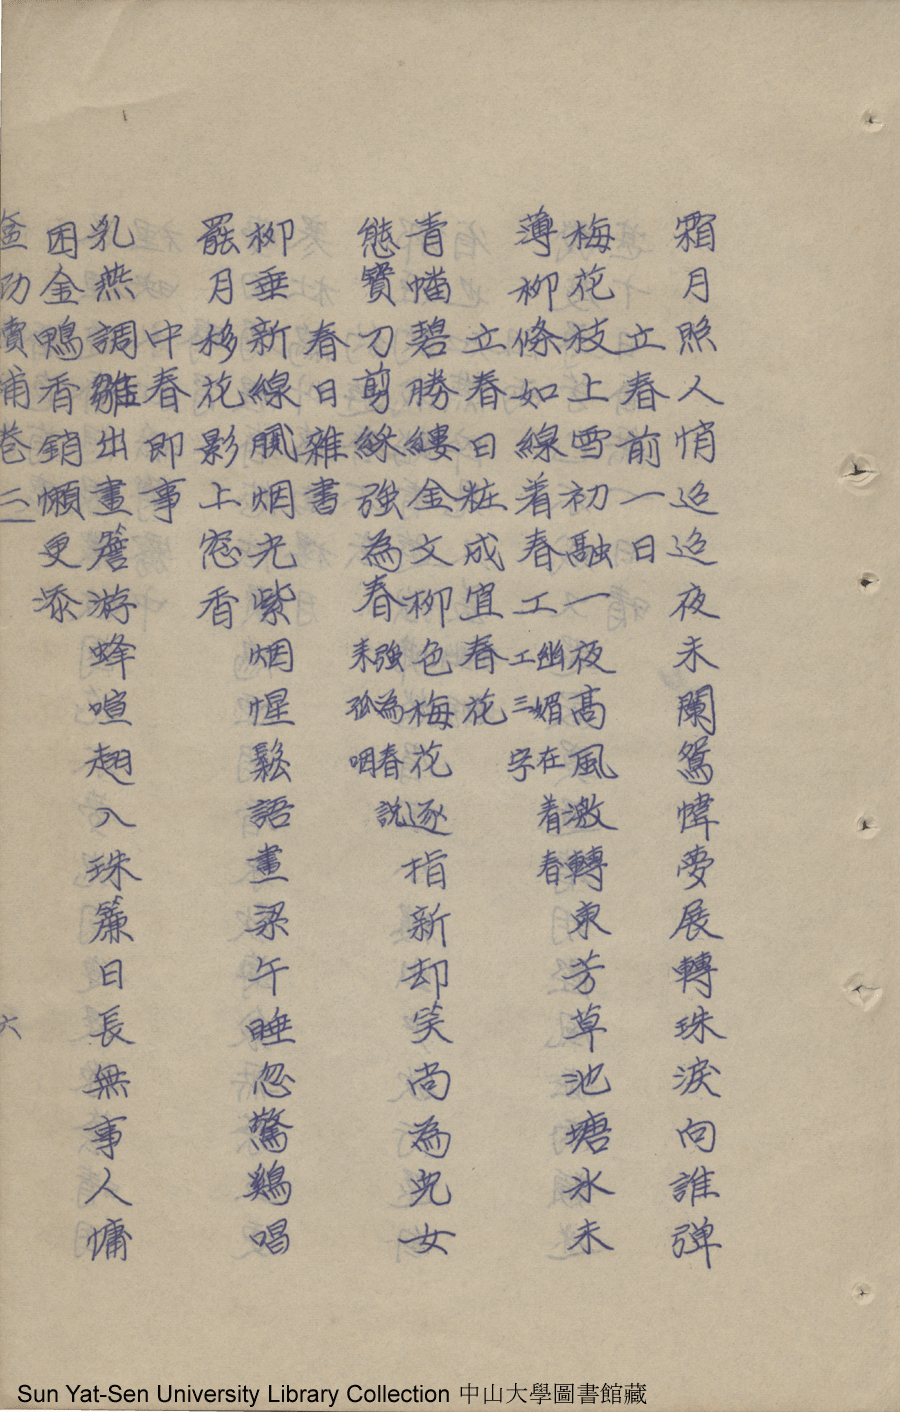 霜月照人悄迢迢夜未闌鴛幃夢展轉珠淚向誰彈
立春前一日
梅花枝上雪初融一夜高風激轉東芳草池塘氷未
薄柳條如線着春工幽媚在着春工三字
立春日粧成宜春花
青幡碧勝縷金文柳色梅花逐指新却笑尚為児女
態寳刀剪綵強為春強為春說来孤咽
春日雜書
柳垂新線膩烟光紫烟惺鬆語畫梁午睡忽驚鷄唱
罷月移花影上窓香
中春即事
乳燕調雛出畫簷游蜂喧趐入珠簾日長無事人慵
困金鴨香銷懶更添
卷二 六
Sun Yat-Sen University Library Collection 中山大學圖書館藏